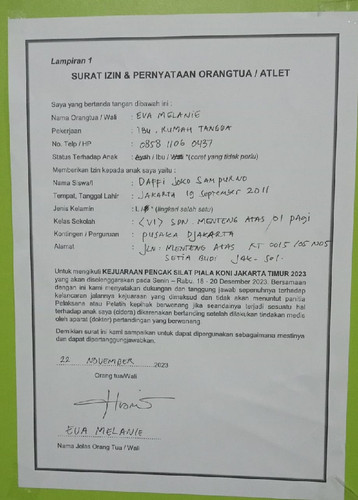 Lampiran 1
SURAT IZIN & PERNYATAAN ORANGTUA / ATLET
Saya yang bertanda tangan dibawah ini :
Nama Orangtua / Wali : EVA MELANIE
Pekerjaan : IBU RUMAH TANGGA
No. Telp / HP : 0858 1106 0437
Status Terhadap Anak : Ayah / Ibu / Wali *(coret yang tidak perlu)
Memberikan Izin kepada anak saya yaitu :
Nama Siswa/i : DAFFI JOKO SAMPURNO
Tempat, Tanggal Lahir : JAKARTA 19 SEPTEMBER 2011
Jenis Kelamin : *(lingkari salah satu)
Kelas Sekolah : (VI) SDN. MENTENG ATAS 01 PAGI
Kontingen / Perguruan : PUSAKA DJAKARTA
Alamat : JLN. MENTENG ATAS RT 0015 /05 NO5
SETIA BUDI JAK-Sel.
Untuk mengikuti KEJUARAAN PENCAK SILAT PIALA KONI JAKARTA TIMUR 2023
yang akan diselenggarakan pada Senin – Rabu, 18 - 20 Desember 2023. Bersamaan
dengan ini kami menyatakan dukungan dan tanggung jawab sepenuhnya terhadap
kelancaran jalannya kejuaraan yang dimaksud dan tidak akan menuntut panitia
Pelaksana atau Pelatih kepihak berwenang jika seandainya terjadi sesuatu hal
terhadap anak saya (cidera) dikarenakan bertanding setelah dilakukan tindakan medis
oleh aparat (dokter) pertandingan yang berwenang
Demikian surat ini kami sampaikan untuk dapat dipergunakan sebagaimana mestinya
dan dapat dipertanggungjawabkan.
22 NOVEMBER 2023
Orang tua/Wali
EVA MELANIE
Nama Jelas Orang Tua / Wali